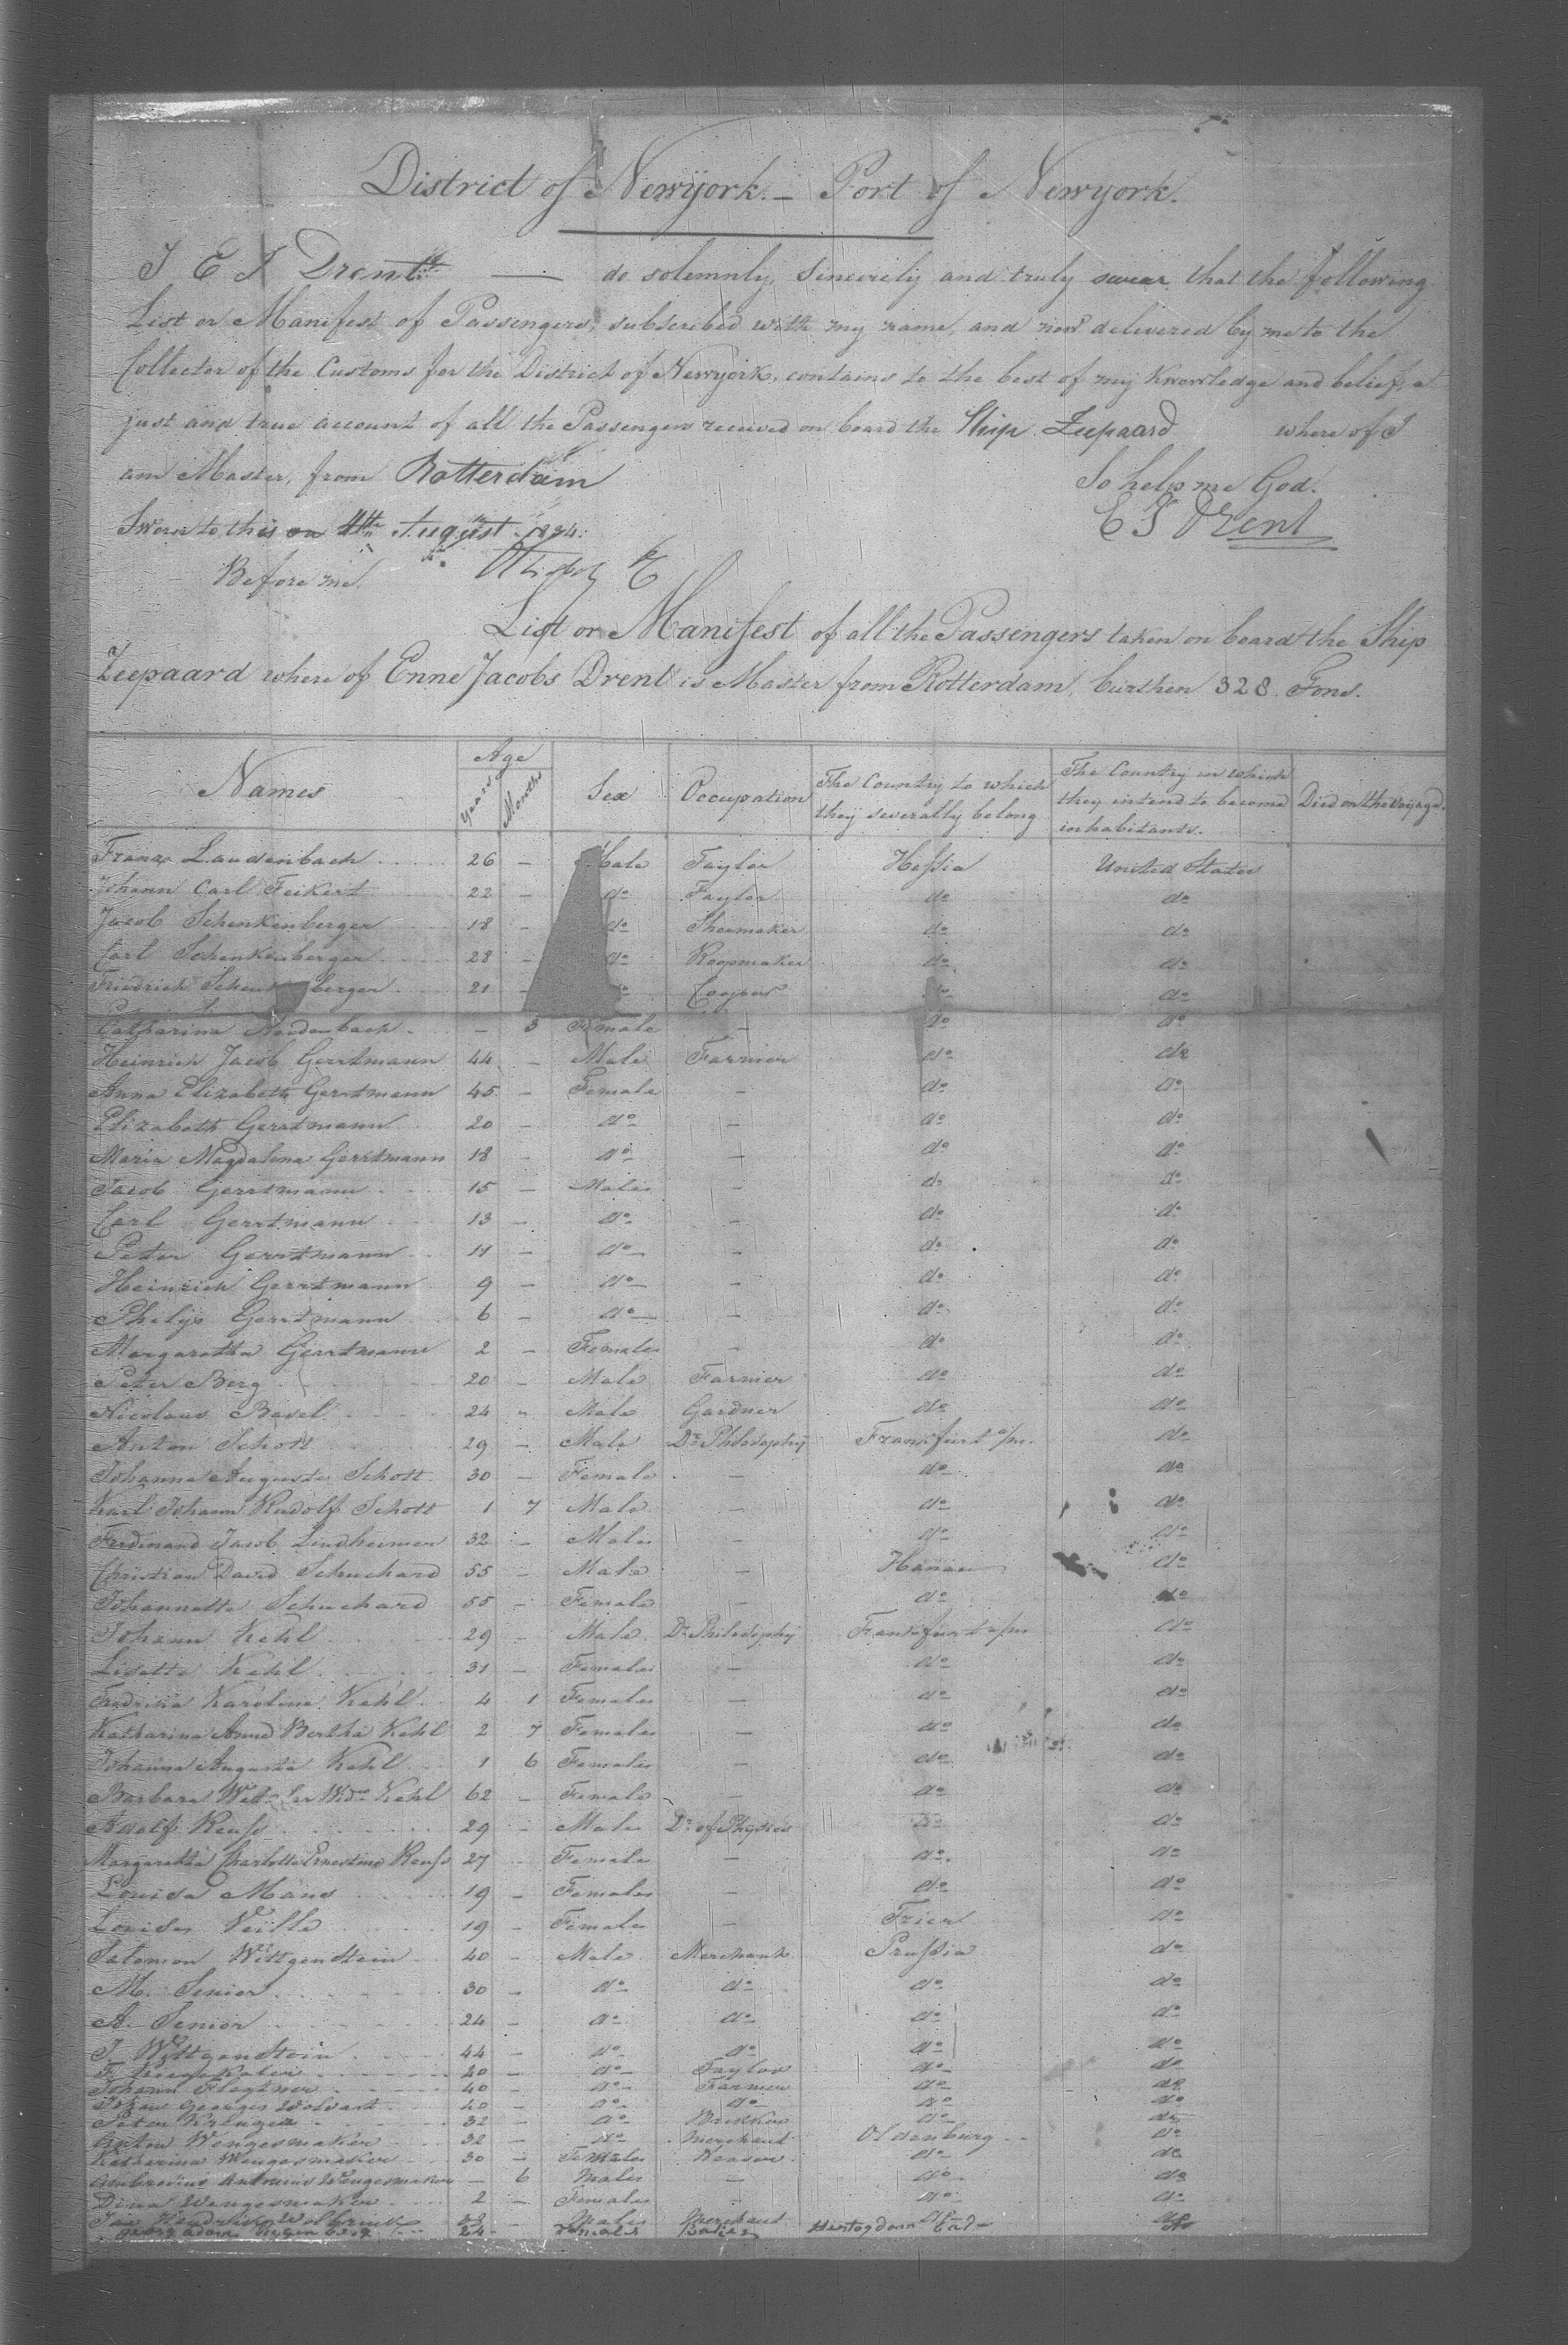 District of Newyork. – Port of Newyork.
I E J Drent — do solemnly, sincerely and truly swear that the following
List or Manifest of Passengers, subscribed with my name, and now delivered by me to the
Collector of the Customs for the District of Newyork, contains to the best of my knowledge and belief, a
just and true account of all the Passengers received on board the Ship Zeepaard where of I
am Master, from Rotterdam
So help me God.
Sworn to this 11th August 1834.
E J Drent
Before me.
List or Manifest of all the Passengers taken on board the Ship
Zeepaard where of Enne Jacobs Drent is Master from Rotterdam, burthen 328 Tons.
Names Age Years Months Sex Occupation The Country to which they severally belong The Country in which they intend to become inhabitants. Died on the voyage.
Franz Laudenbach 26 – Male Taylor Hessia United States
Johann Carl Feikert 22 – do Taylor do do
Jacob Schenkenberger 18 – do Shoemaker do do
Carl Schenkenberger 28 – do Roopmaker do do
Friedrich Schenkenberger 21 – Cooper do
Catharina – 3 Female – do do
Heinrich Jacob Gerrtmann 44 – Male Farmer do do
Anna Elizabeth Gerrtmann 45 – Female – do do
Elizabeth Gerrtmann 20 – do – do do
Maria Magdalena Gerrtmann 18 – do – do do
Jacob Gerrtmann 15 – Male – do do
Carl Gerrtmann 13 – do – do do
Peter Gerrtmann 11 – do – do do
Heinrich Gerrtmann 9 – do – do do
Philip Gerrtmann 6 – do – do do
Margaretha Gerrtmann 2 – Female – do do
Peter Berg 20 – Male Farmer do do
Nicolaus Basel 24 – Male Gardner do do
Anton Schott 29 – Male Dr Philosophy Frankfurt a/m. do
Johanna Auguste Schott 30 – Female – do do
Karl Johann Rudolf Schott 1 7 Male – do do
Ferdinand Jacob Lindheimer 32 – Male – do do
Christian David Schuchard 55 – Male – Hanau do
Johannette Schuchard 55 – Female – do do
Johann Kehl 29 – Male Dr Philosophy Frankfurt a/m do
Lisette Kehl 31 – Female – do do
Karoline Kehl 4 1 Female – do do
Katharina Anna Bertha Kehl 2 7 Female – do do
Johanna Augusta Kehl 1 6 Female – do do
Barbara Kehl 62 – Female – do do
Adolf Reuss 29 – Male Dr of Physics do do
Margaretha Charlotte Ernestine Reuss 27 – Female – do do
Louisa Maas 19 – Female – do do
Louisa 19 – Female – Trier do
Salomon Wittgenstein 40 – Male Merchant Prussia do
M. Senior 30 – do do do do
A. Senior 24 – do do do do
J. Wittgenstein 44 – do do do do
F. 20 – do Taylor do do
Johann 40 – do Farmer do do
Johan Georges 40 – do do do do
Peter 32 – do do do
Anton Wengesmaker 32 – do Merchant Oldenburg do
Katharina Wengesmaker 30 – Female do do
Antonius Wengesmaker – 6 Male – do do
Dina Wengesmaker 2 – Female – do do
Jan Hendrik – Male Merchant do do
Georg Adam 24 –